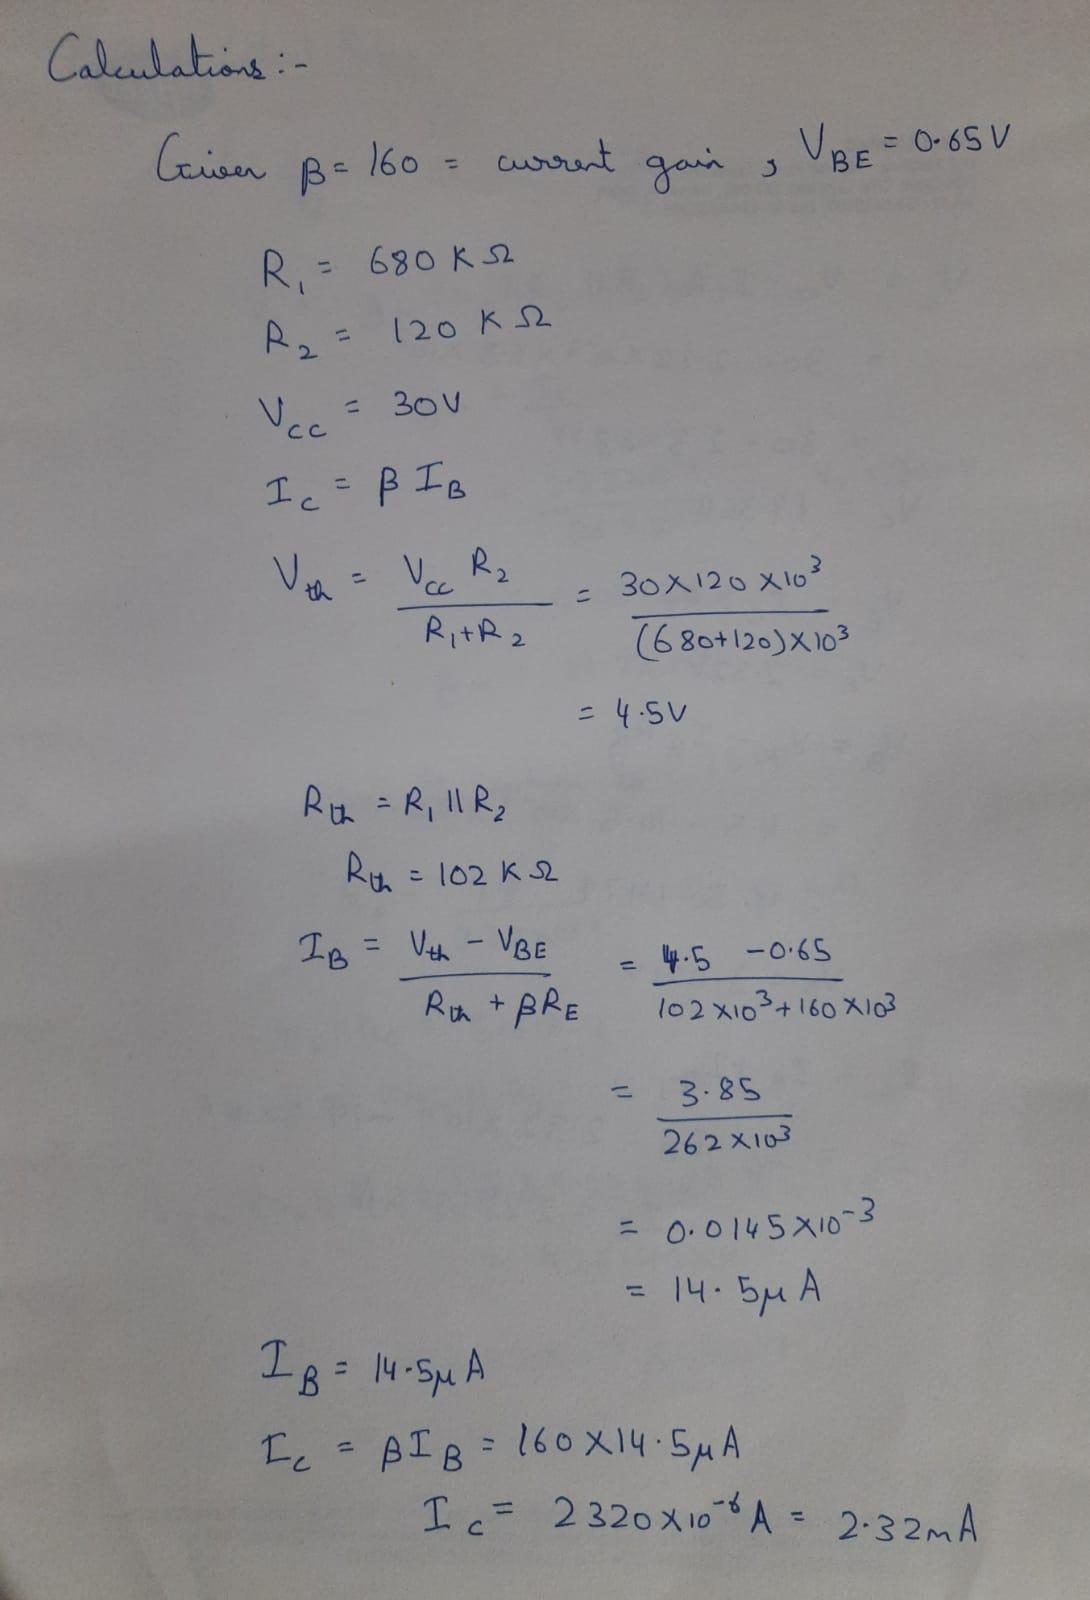 Calculations :-
Given β = 160 = current gain , V_BE = 0.65 V
R₁ = 680 K Ω
R₂ = 120 K Ω
V_CC = 30V
I_C = β I_B
V_th = V_CC R₂ / R₁+R₂ = 30×120×10³ / (680+120)×10³
= 4.5V
R_th = R₁ || R₂
R_th = 102 K Ω
I_B = V_th - V_BE / R_th + βR_E = 4.5 - 0.65 / 102×10³ + 160×10³
= 3.85 / 262×10³
= 0.0145×10⁻³
= 14.5μ A
I_B = 14.5μ A
I_C = βI_B = 160×14.5μ A
I_C = 2320×10⁻⁶ A = 2.32mA